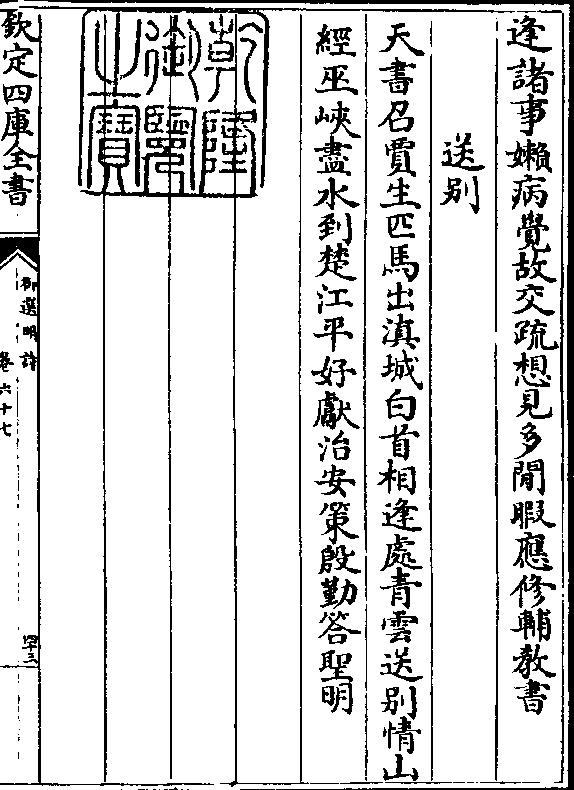 逢諸事嬾病覺故交疏想見多閒暇應修輔教書
送别
天書召賈生匹馬出滇城白首相逢處青雲送别情山
經巫峽盡水到楚江平好獻治安策殷勤答聖明
乾隆御覽之寶
欽定四庫全書
御選明詩
卷六十七
四十三